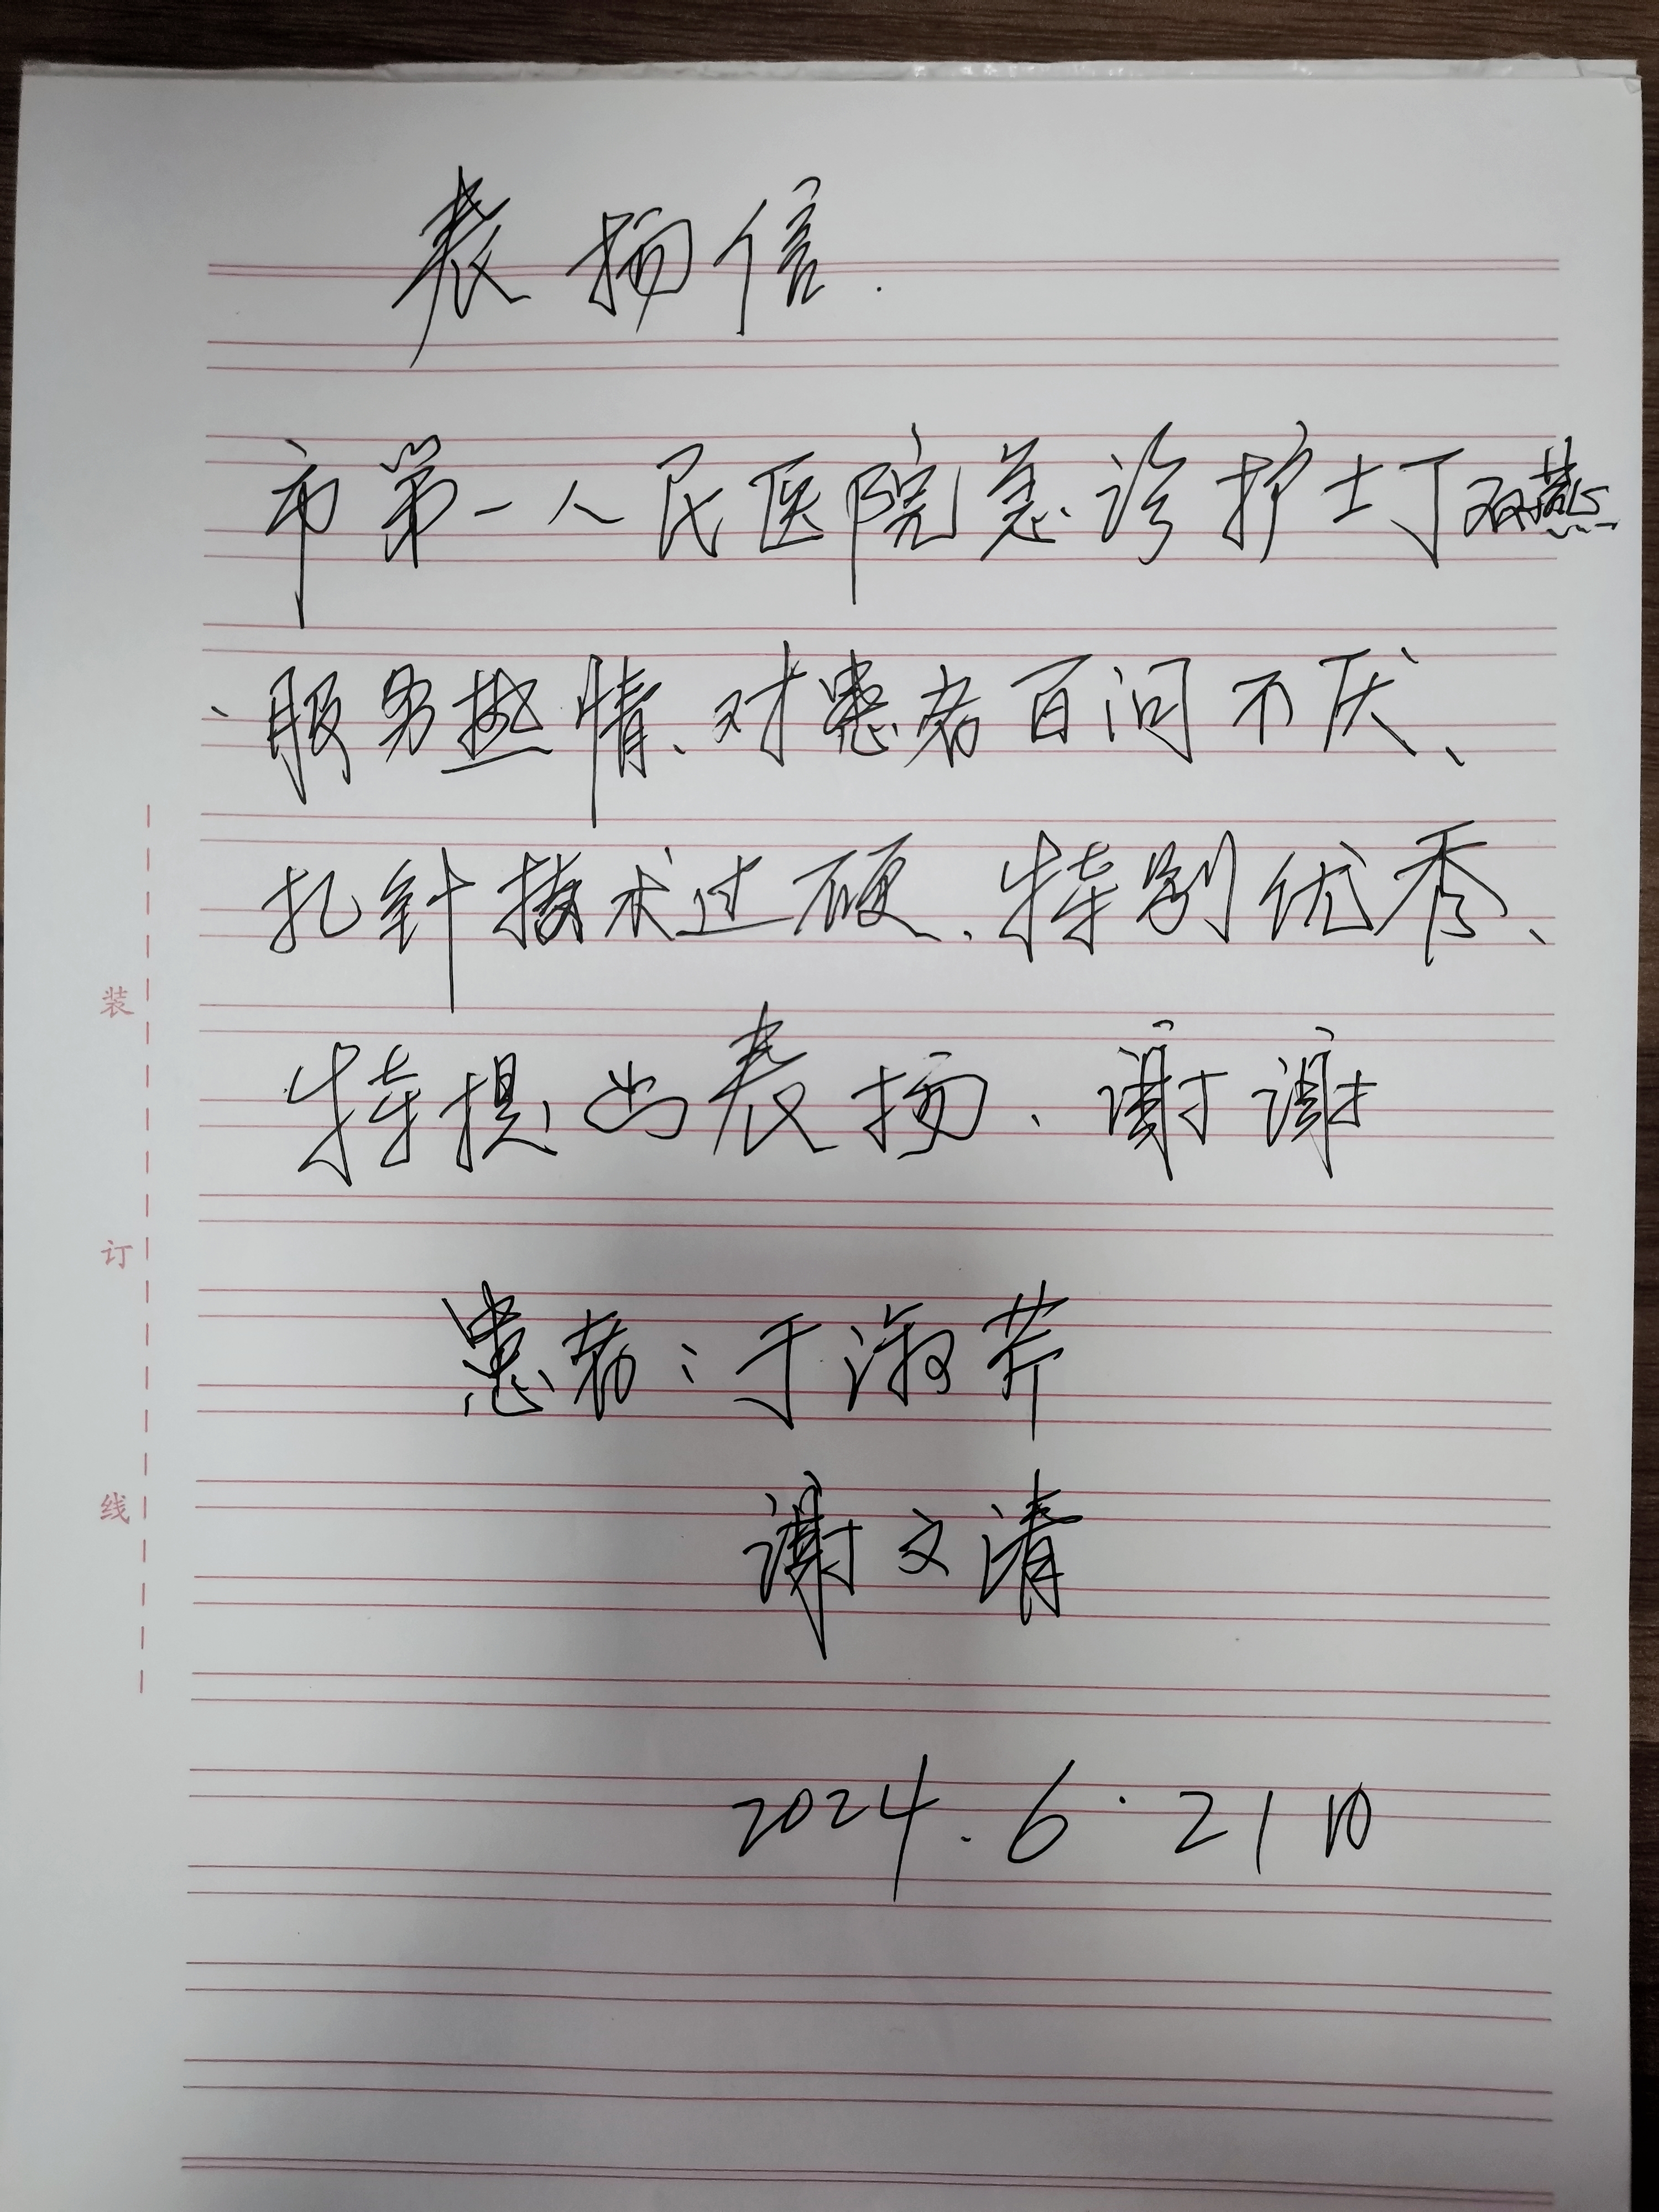 表扬信.
市第一人民医院急诊护士丁双燕
、服务热情、对患者百问不厌、
扎针技术过硬、特别优秀、
特提出表扬、谢谢
患者:于淑芹
谢文清
2024.6.21日
装
订
线